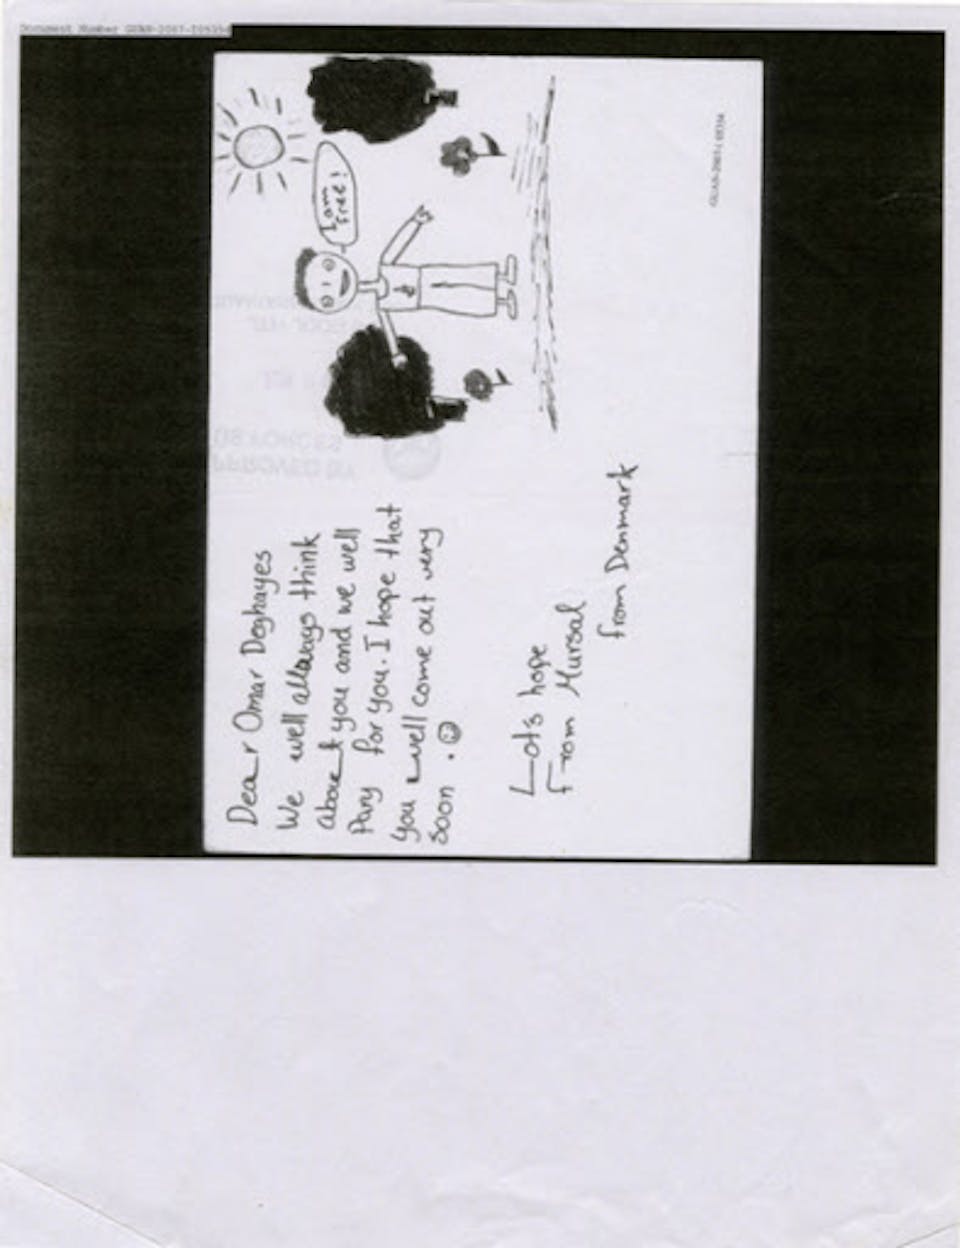 Dear Omar Deghayes
We well allways think
about you and we well
Pary for you. I hope that
you well come out very
soon. ☺
Lots hope
From Mursal
from Denmark
I am
free!
Document Number